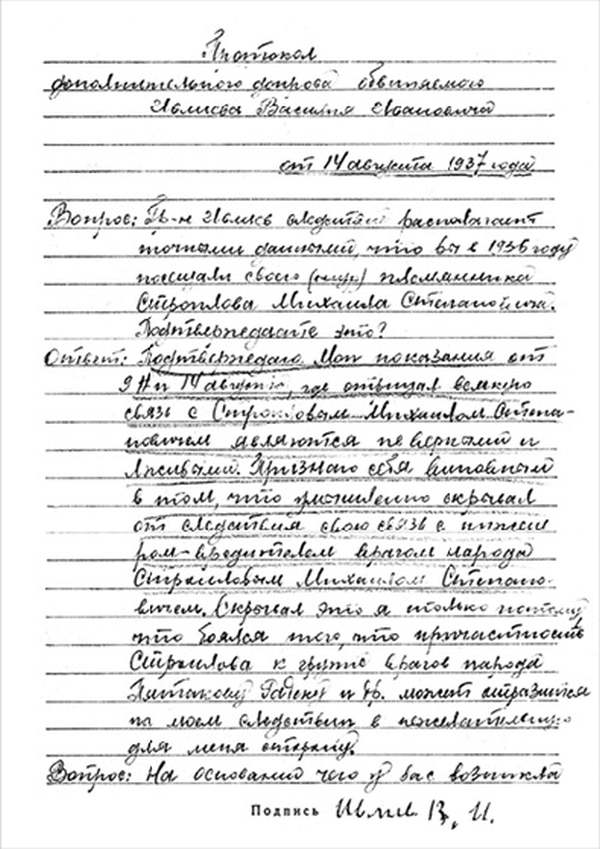 Протокол
дополнительного допроса обвиняемого
Ивлиева Василия Ивановича
от 14 августа 1937 года
Вопрос: Гр-н Ивлиев следствие располагает
точными данными, что вы в 1936 году
посещали своего племянника
Строилова Михаила Степановича.
Подтверждаете это?
Ответ: Подтверждаю. Мои показания от
9 и 14 августа, где отрицал всякую
связь с Строиловым Михаилом Степа-
новичем являются неверными и
лживыми. Признаю себя виновным
в том, что умышленно скрывал
от следствия свою связь с инжене
ром-вредителем врагом народа
Строиловым Михаилом Степано-
вичем. Скрывал это я только потому
что боялся того, что причастность
Строилова к группе врагов народа
Пятакову Радек и др. может отразиться
на моем следствии в нежелательную
для меня сторону.
Вопрос: На основании чего у вас возникла
Подпись Ивлиев В. И.